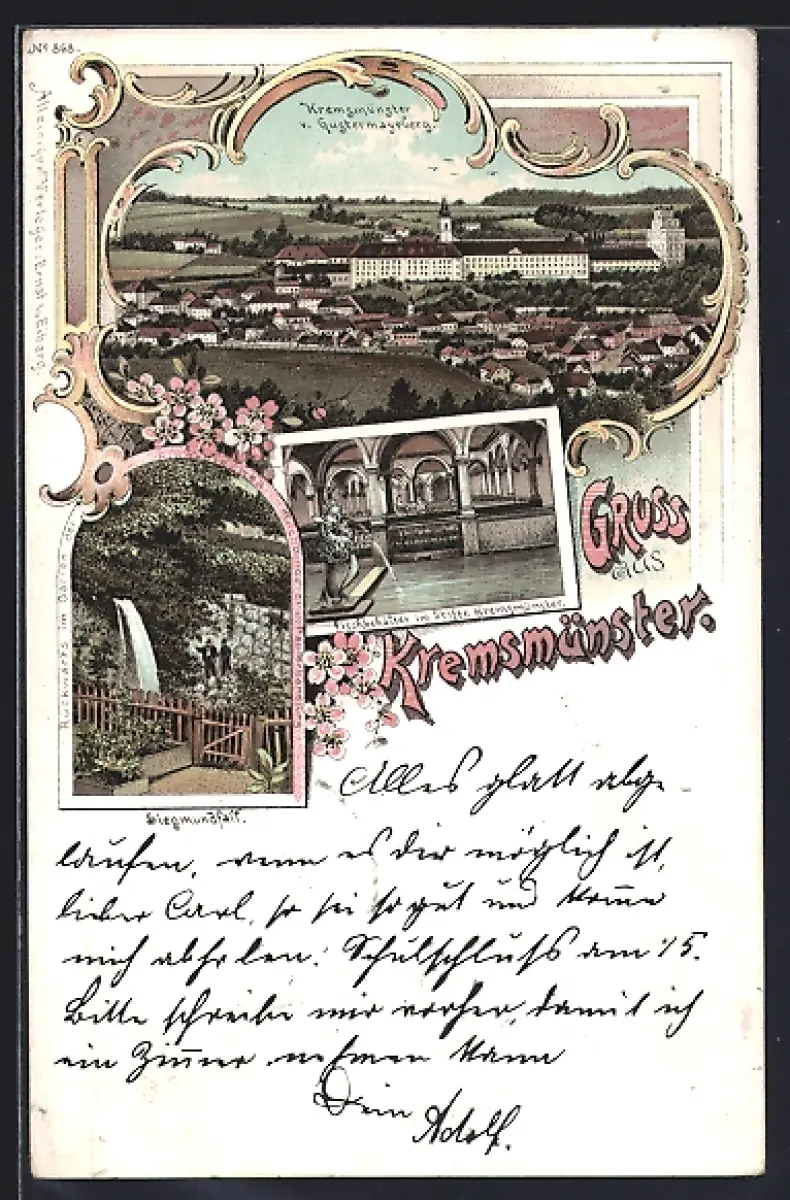 No 868.
Kremsmünster
v. Gustermayrberg.
Alleiniger Verleger: Ernst v. Eiberg.
GRUSS
aus
Kremsmünster.
Fischbehälter im Stifte Kremsmünster.
Rückwärts im Garten der
Siegmundfall.
Alles glatt abge-
laufen, wenn es dir möglich ist,
lieber Carl, so sei so gut und komme
mich abholen: Schulschluſs am 15.
Bitte schreibe mir vorher, damit ich
ein Zimmer nehmen kann
Dein
Adolf.